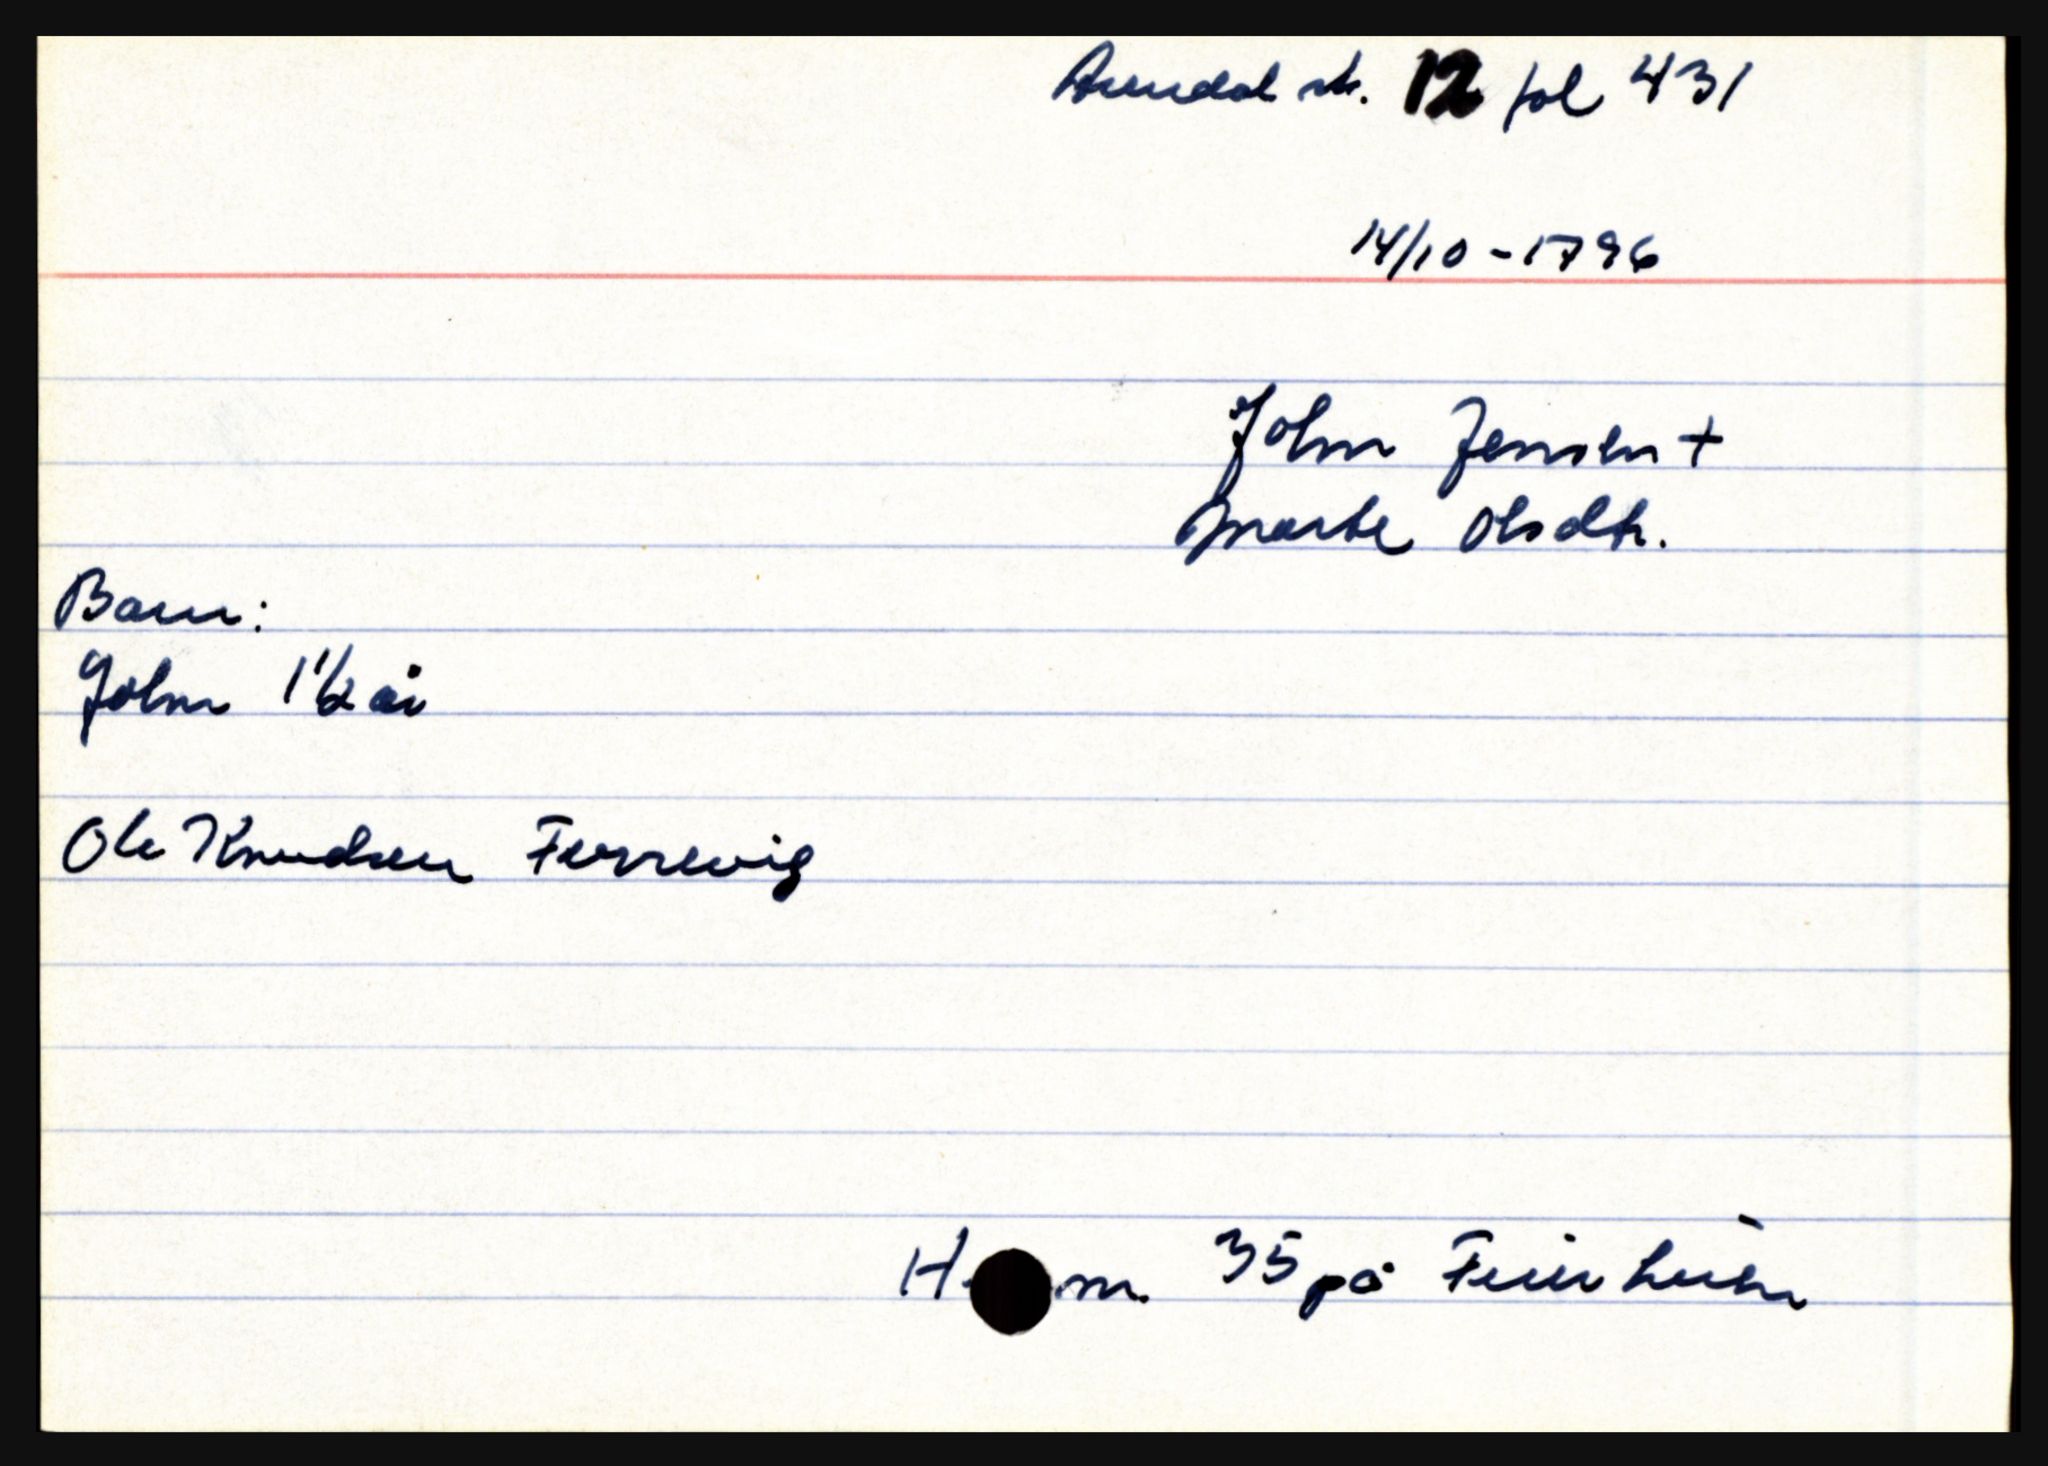 Arendal sk. 12 fol 431
14/10-1796
John Jensen +
Marte Olsdtr.
Barn:
John 1 1/2 år
Ole Knudsen Ferrevig
35 på